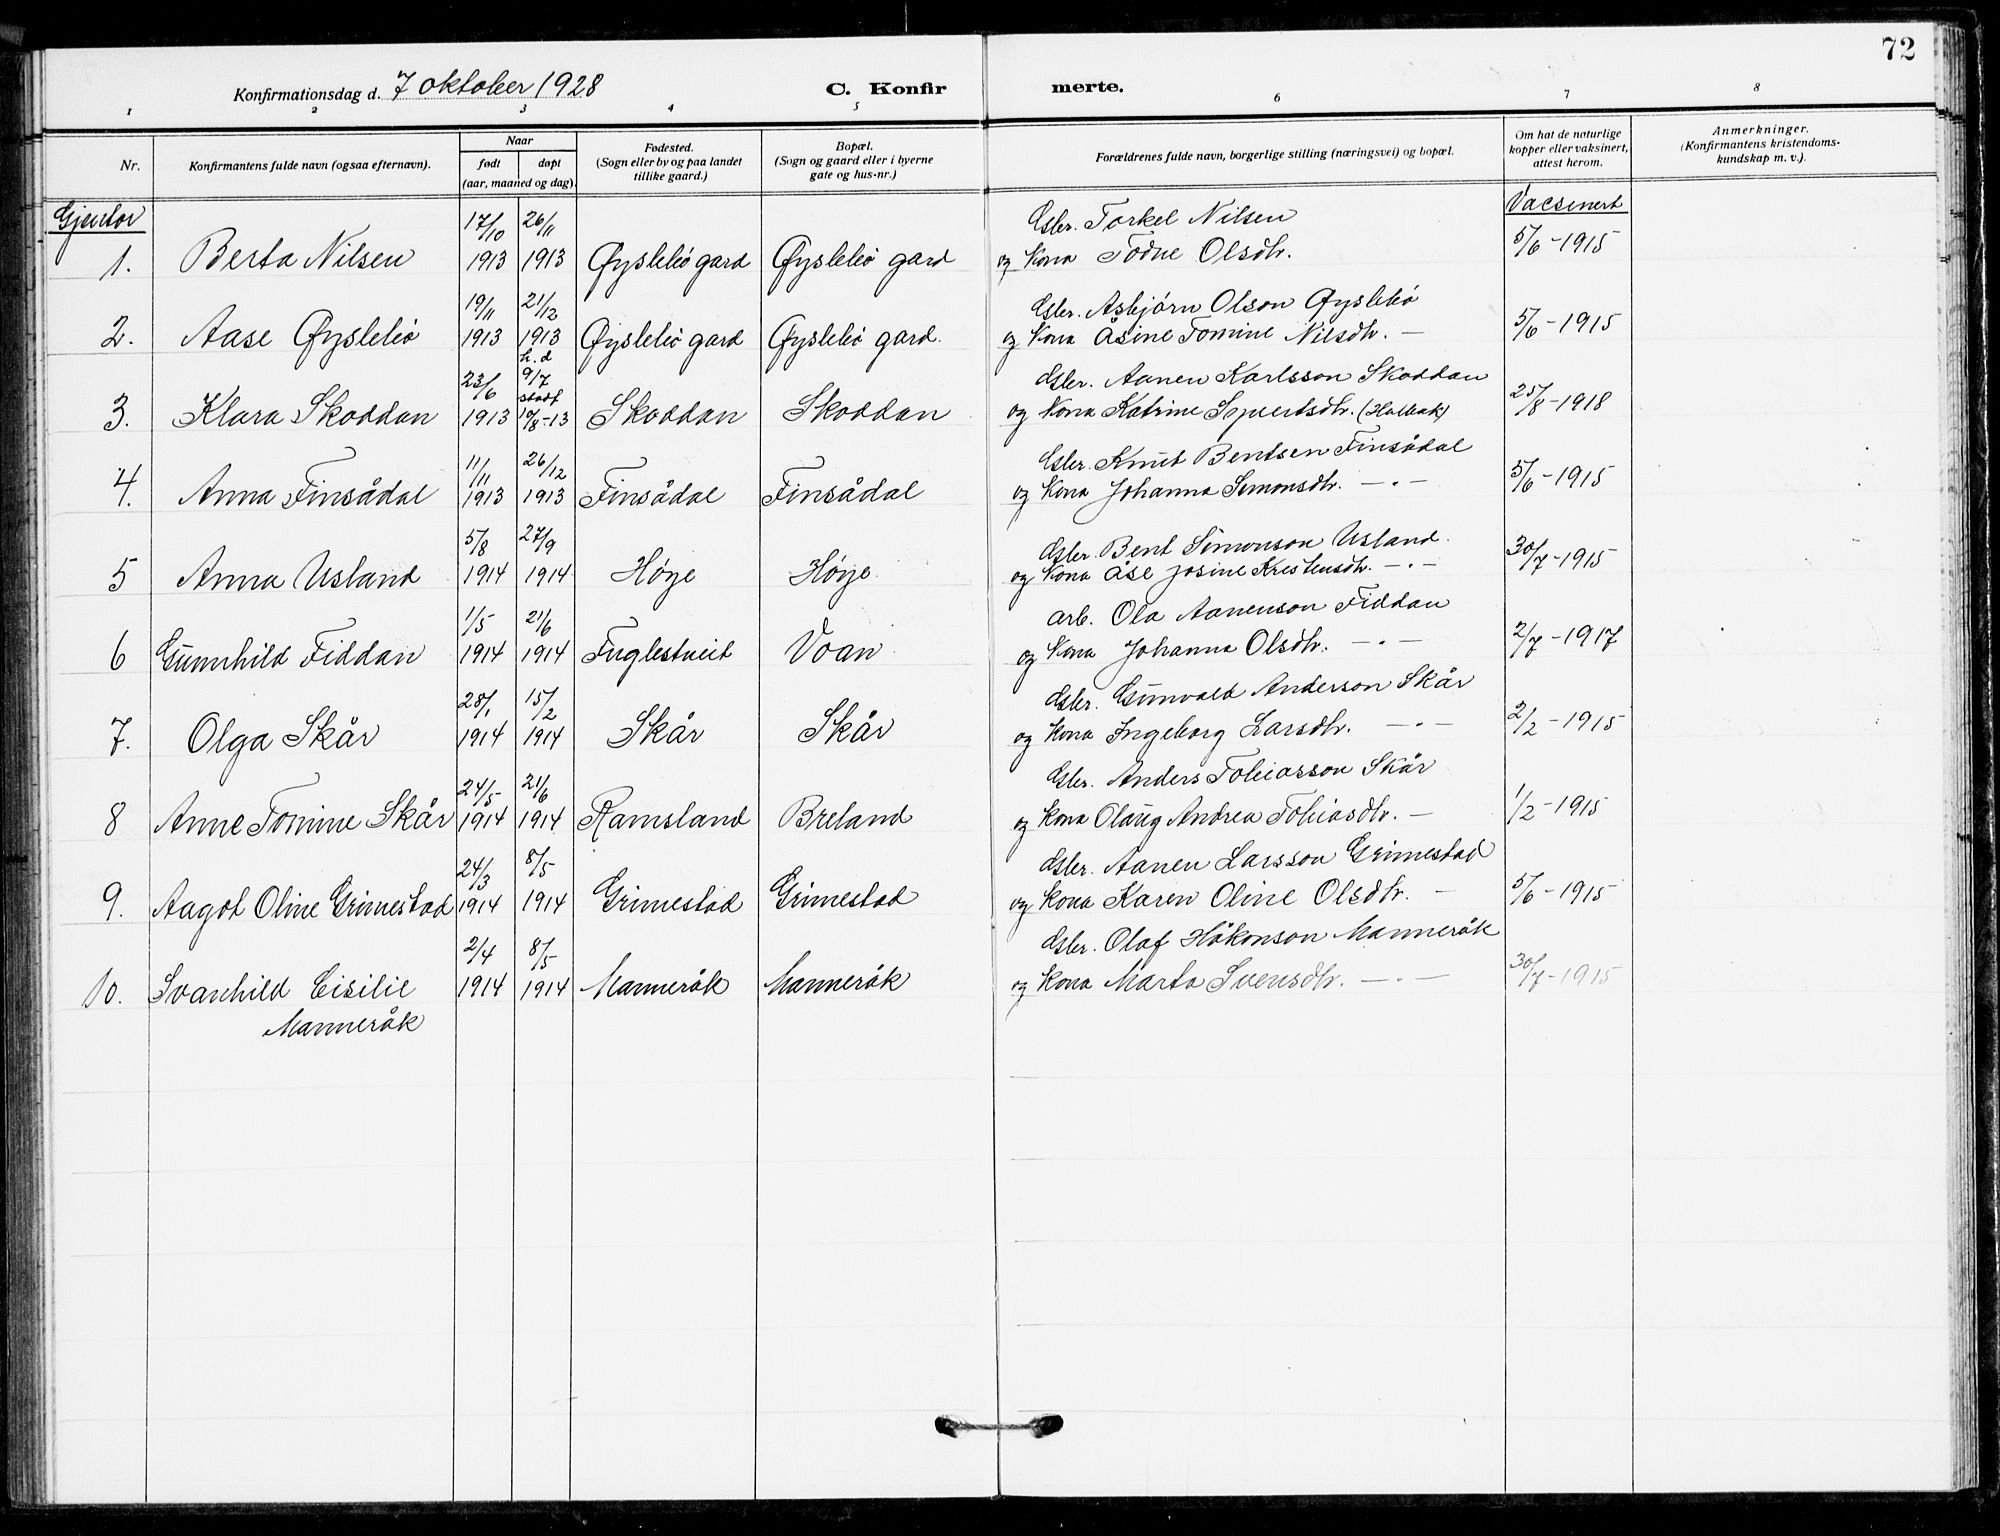 72
Konfirmationsdag d. 7 oktober 1928 C. Konfir merte.
1 2 3 4 5 6 7 8
Nr. Konfirmantens fulde navn (ogsaa efternavn). Naar født døpt (aar, maaned og dag). Fødested. (Sogn eller by og paa landet tillike gaard.) Bopæl. (Sogn og gaard eller i byerne gate og hus-nr.) Forældrenes fulde navn, borgerlige stilling (næringsvei) og bopæl. Om hat de naturlige kopper eller vaksinert, attest herom. Anmerkninger. (Konfirmantens kristendoms-kundskap m. v.).
Gjentor Vacsinert
17/10 26/11 Gbr. Torkel Nilsen
1. Berta Nilsen 1913 1913 Øyslebø gard Øyslebø gard og Kona Todne Olsdtr. 5/6-1915
19/11 21/12 Gbr. Asbjørn Olson Øyslebø
2. Aase Øyslebø 1913 1913 Øyslebø gard Øyslebø gard. og Kona Åsine Tomine Nilsdtr. — 5/6-1915
h.d
23/6 9/7 Gbr. Aanen Karlsson Skoddan
stadf
3. Klara Skoddan 1913 10/8-13 Skoddan Skoddan og Kona Katrine Syvertsdtr. (Holbæk) 25/8-1918
11/11 26/12 Gbr. Knut Bentsen Finsådal
4. Anna Finsådal 1913 1913 Finsådal Finsådal og Kona Johanna Simonsdtr. —„— 5/6-1915
5/8 27/9 Gbr. Bent Simonson Usland
5 Anna Usland 1914 1914 Høye Høye og Kona Åse Josine Kristensdtr. —„— 30/7-1915
1/5 21/6 arb. Ola Aanenson Fiddan
6 Gunnhild Fiddan 1914 1914 Fuglestveit Voan og Kona Johanna Olsdtr. —„— 2/7-1917
28/1 15/2 Gbr. Gunvald Anderson Skår
7. Olga Skår 1914 1914 Skår Skår og Kona Ingeborg Larsdtr. —„— 2/2-1915
24/5 21/6 Gbr. Anders Tobiasson Skår
8 Anne Tomine Skår 1914 1914 Ramsland Breland og Kona Olaug Andrea Tobiasdtr. — 1/2-1915
24/3 8/5 Gbr. Aanen Larsson Grimestad
9. Aagot Oline Grimestad 1914 1914 Grimestad Grimestad og Kona Karen Oline Olsdtr. — 5/6-1915
2/4 8/5 Gbr. Olaf Håkonson Manneråk
10. Svanhild Cisilie 1914 1914 Manneråk Manneråk og Kona Marta Svensdtr. —„— 30/7-1915
Manneråk